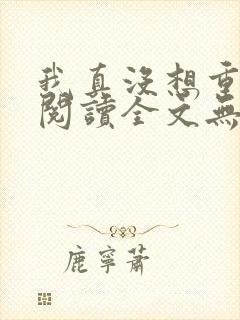 我真沒想重
閱讀全文無
鹿寧蕭